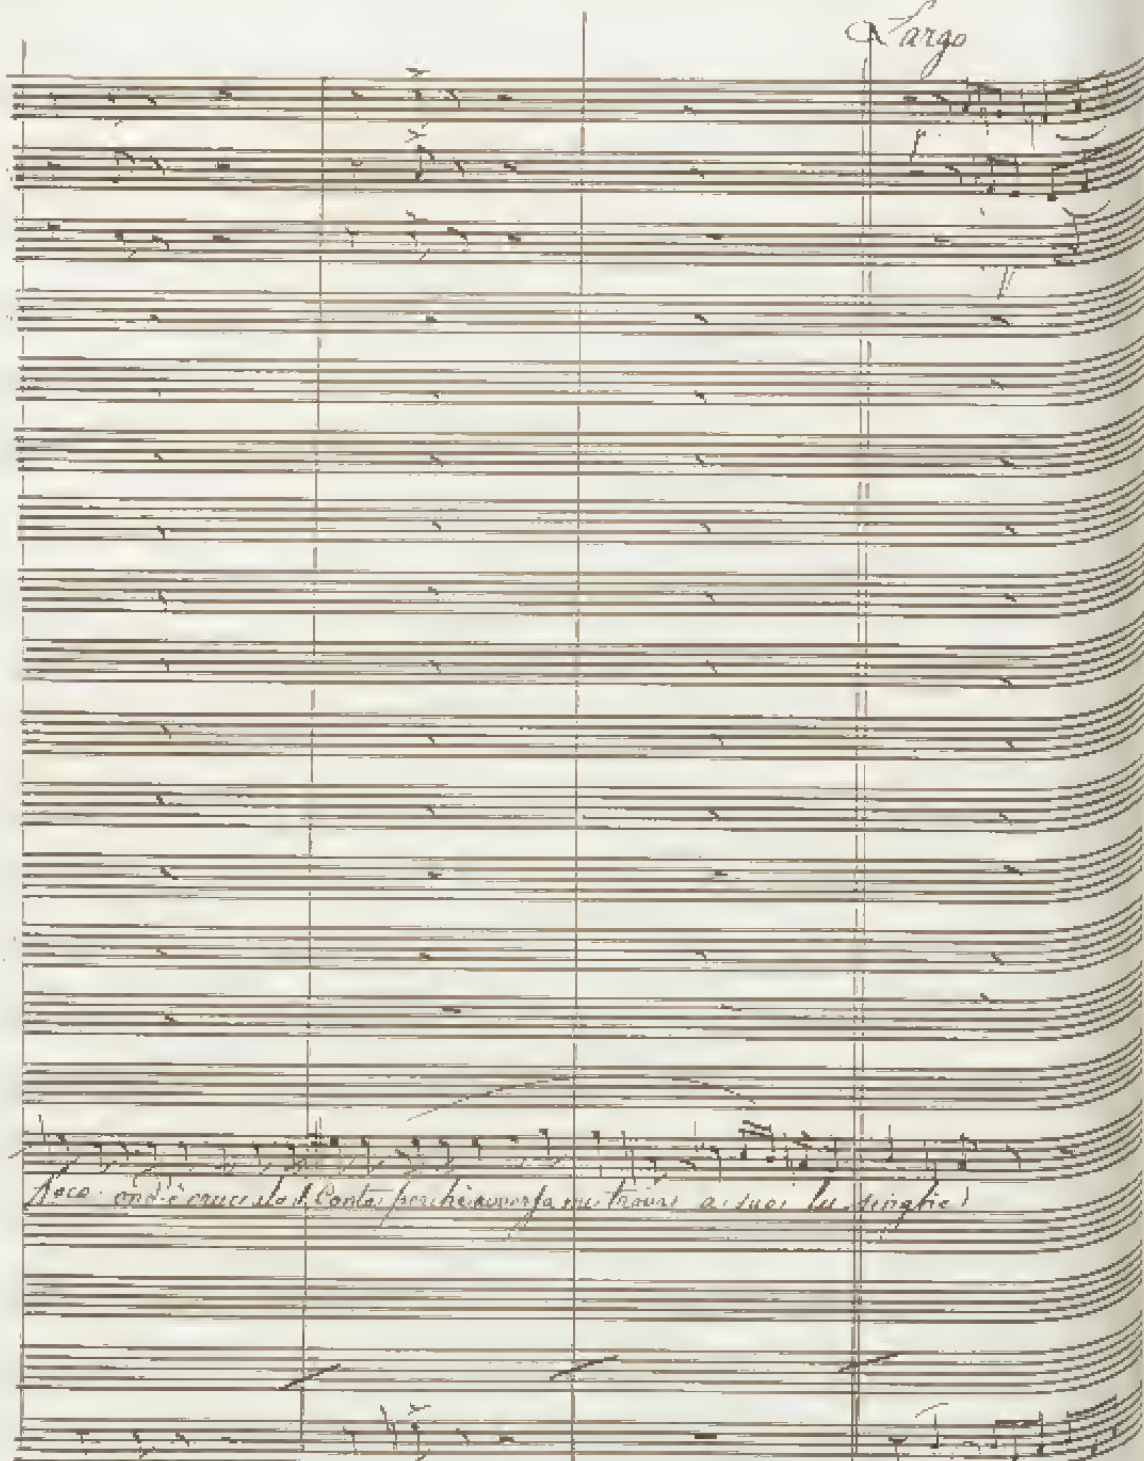 Largo
ond'è crucciato il Conte perchè avversa mi trovi a suoi lusinghe!